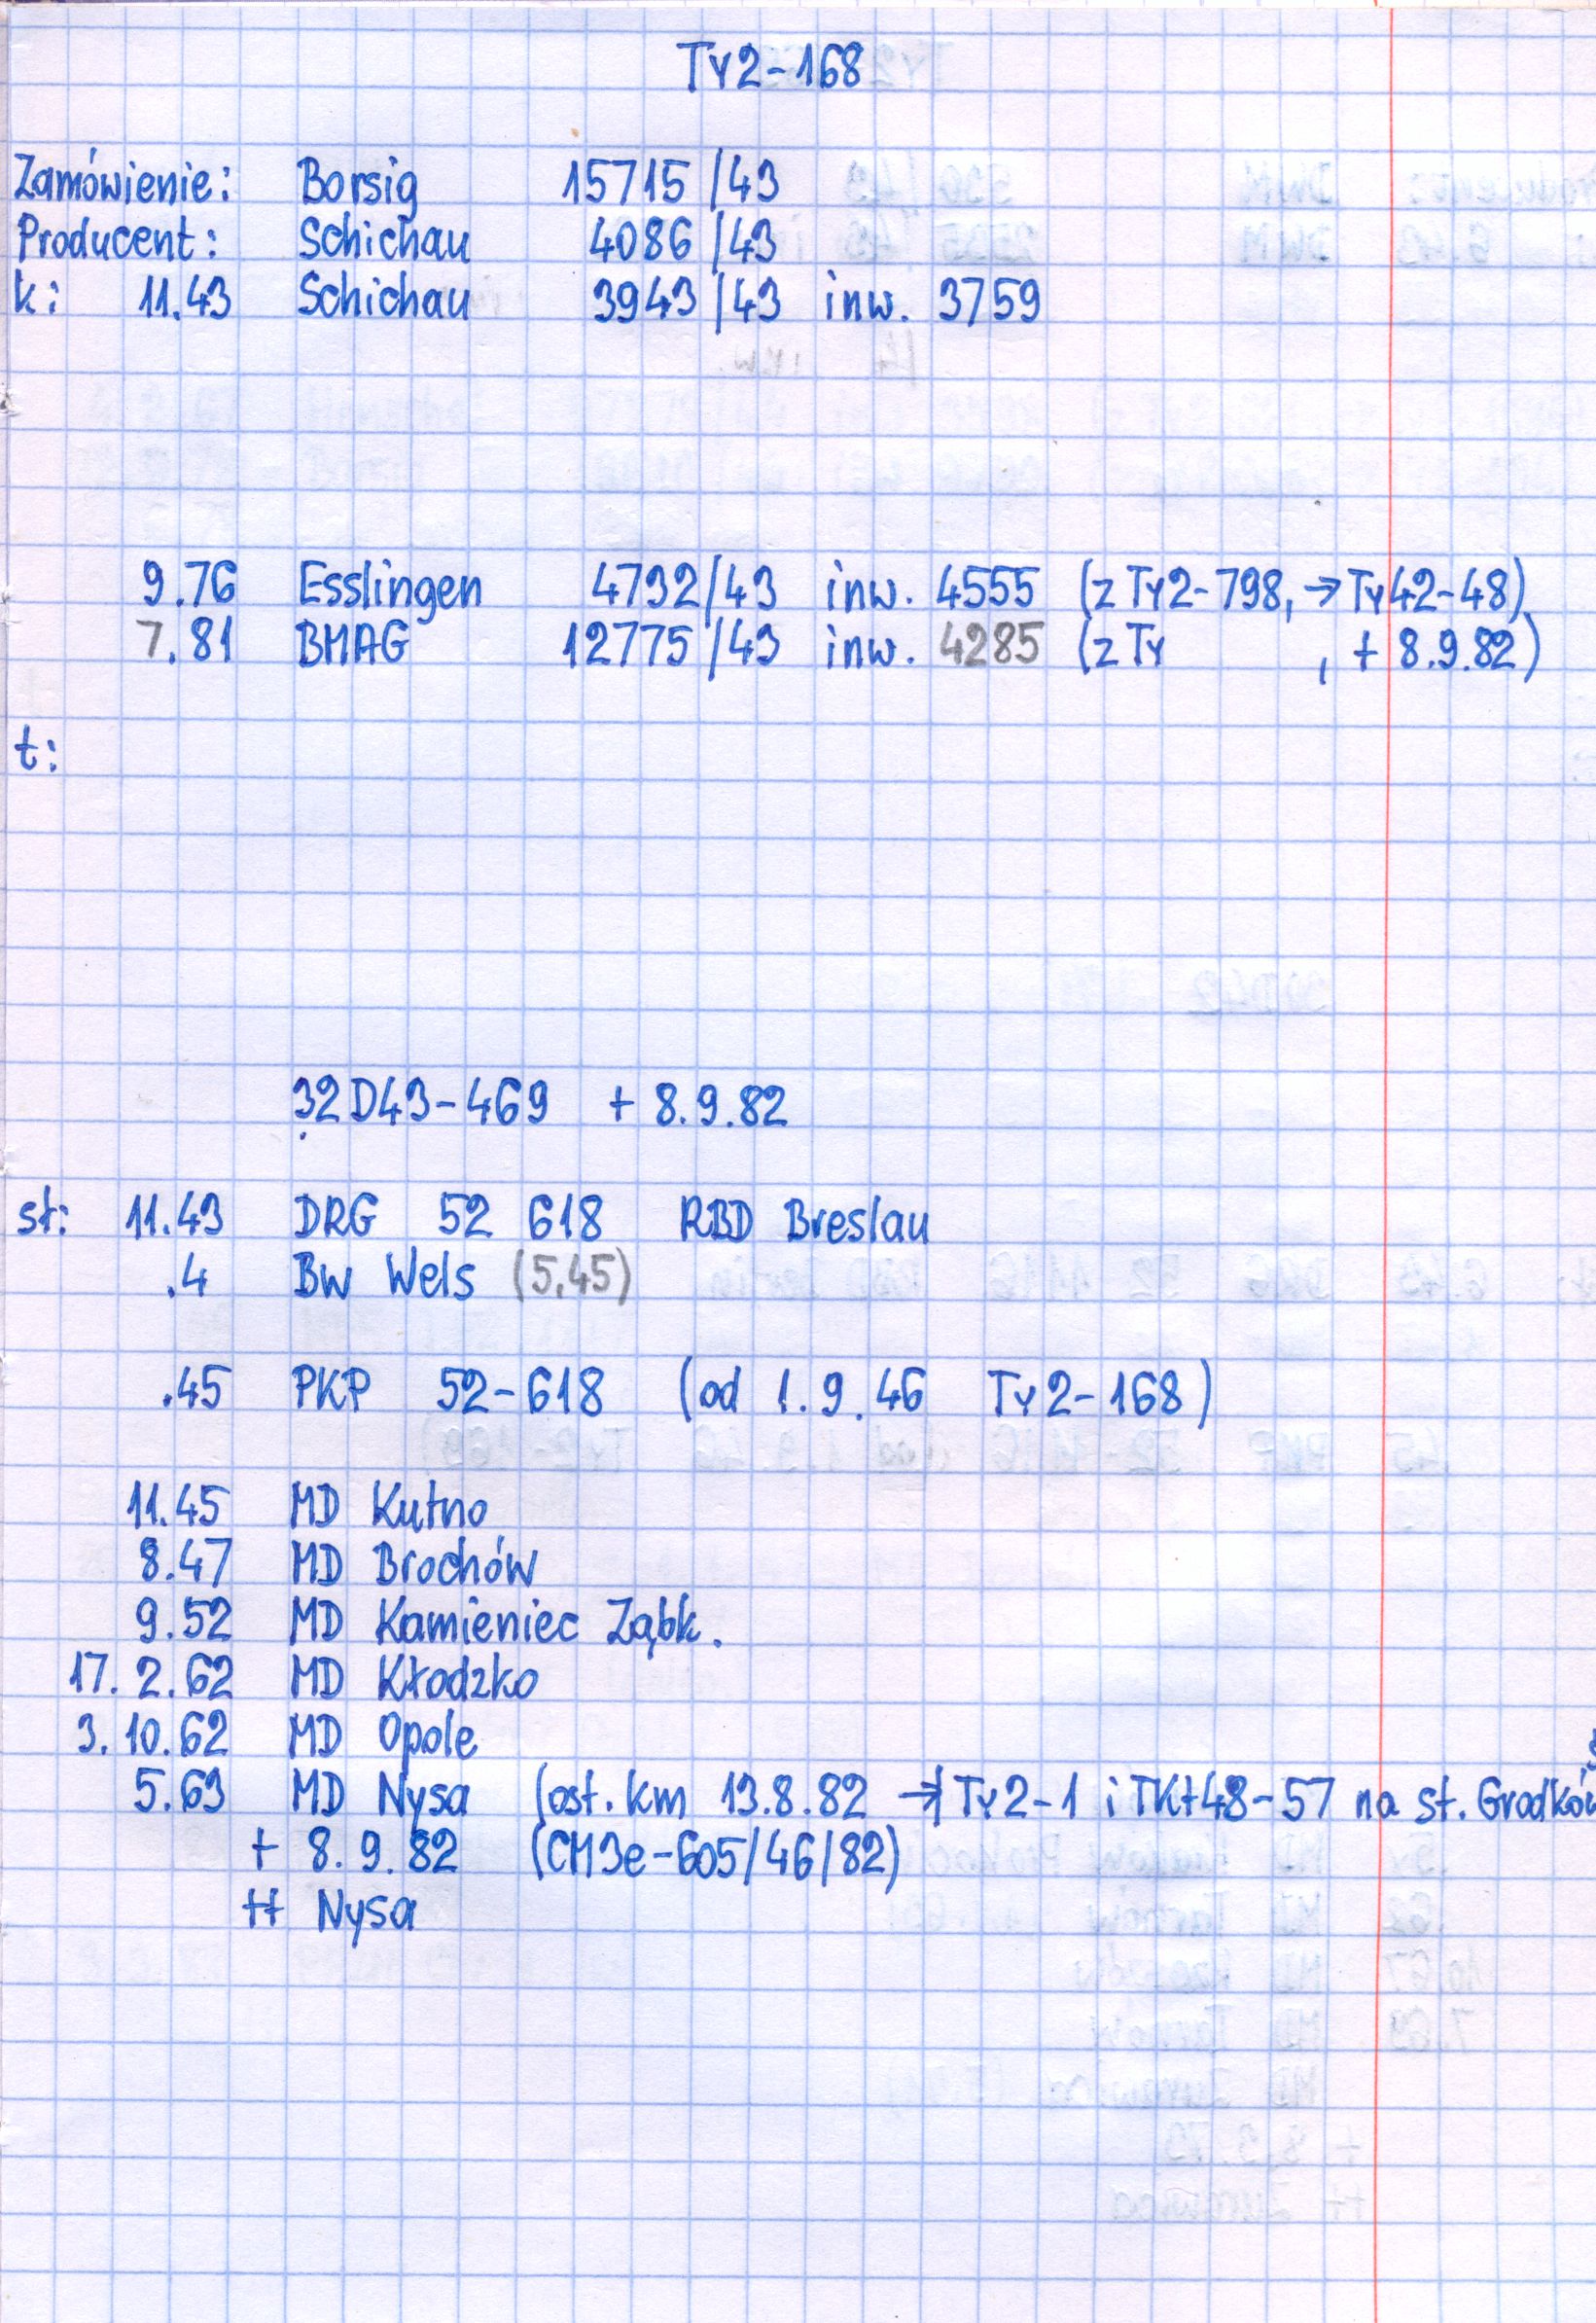 Ty2-168
Zamówienie: Borsig 15715/43
Producent: Schichau 4086/43
k: 11.43 Schichau 3943/43 inw. 3759
9.76 Esslingen 4792/43 inw. 4555 (z Ty2-798, → Ty42-48)
7.81 BMAG 12775/43 inw. 4285 (z Ty , + 8.9.82)
t:
32D43-469 + 8.9.82
st: 11.43 DRG 52 618 RBD Breslau
.4 Bw Wels (5.45)
.45 PKP 52-618 (od 1.9.46 Ty2-168)
11.45 MD Kutno
8.47 MD Brochów
9.52 MD Kamieniec Ząbk.
17.2.62 MD Kłodzko
3.10.62 MD Opole
5.63 MD Nysa (ost. km 13.8.82 →| Ty2-1 i TKt48-57 na st. Grodków
+ 8.9.82 (CM3e-605/46/82)
++ Nysa